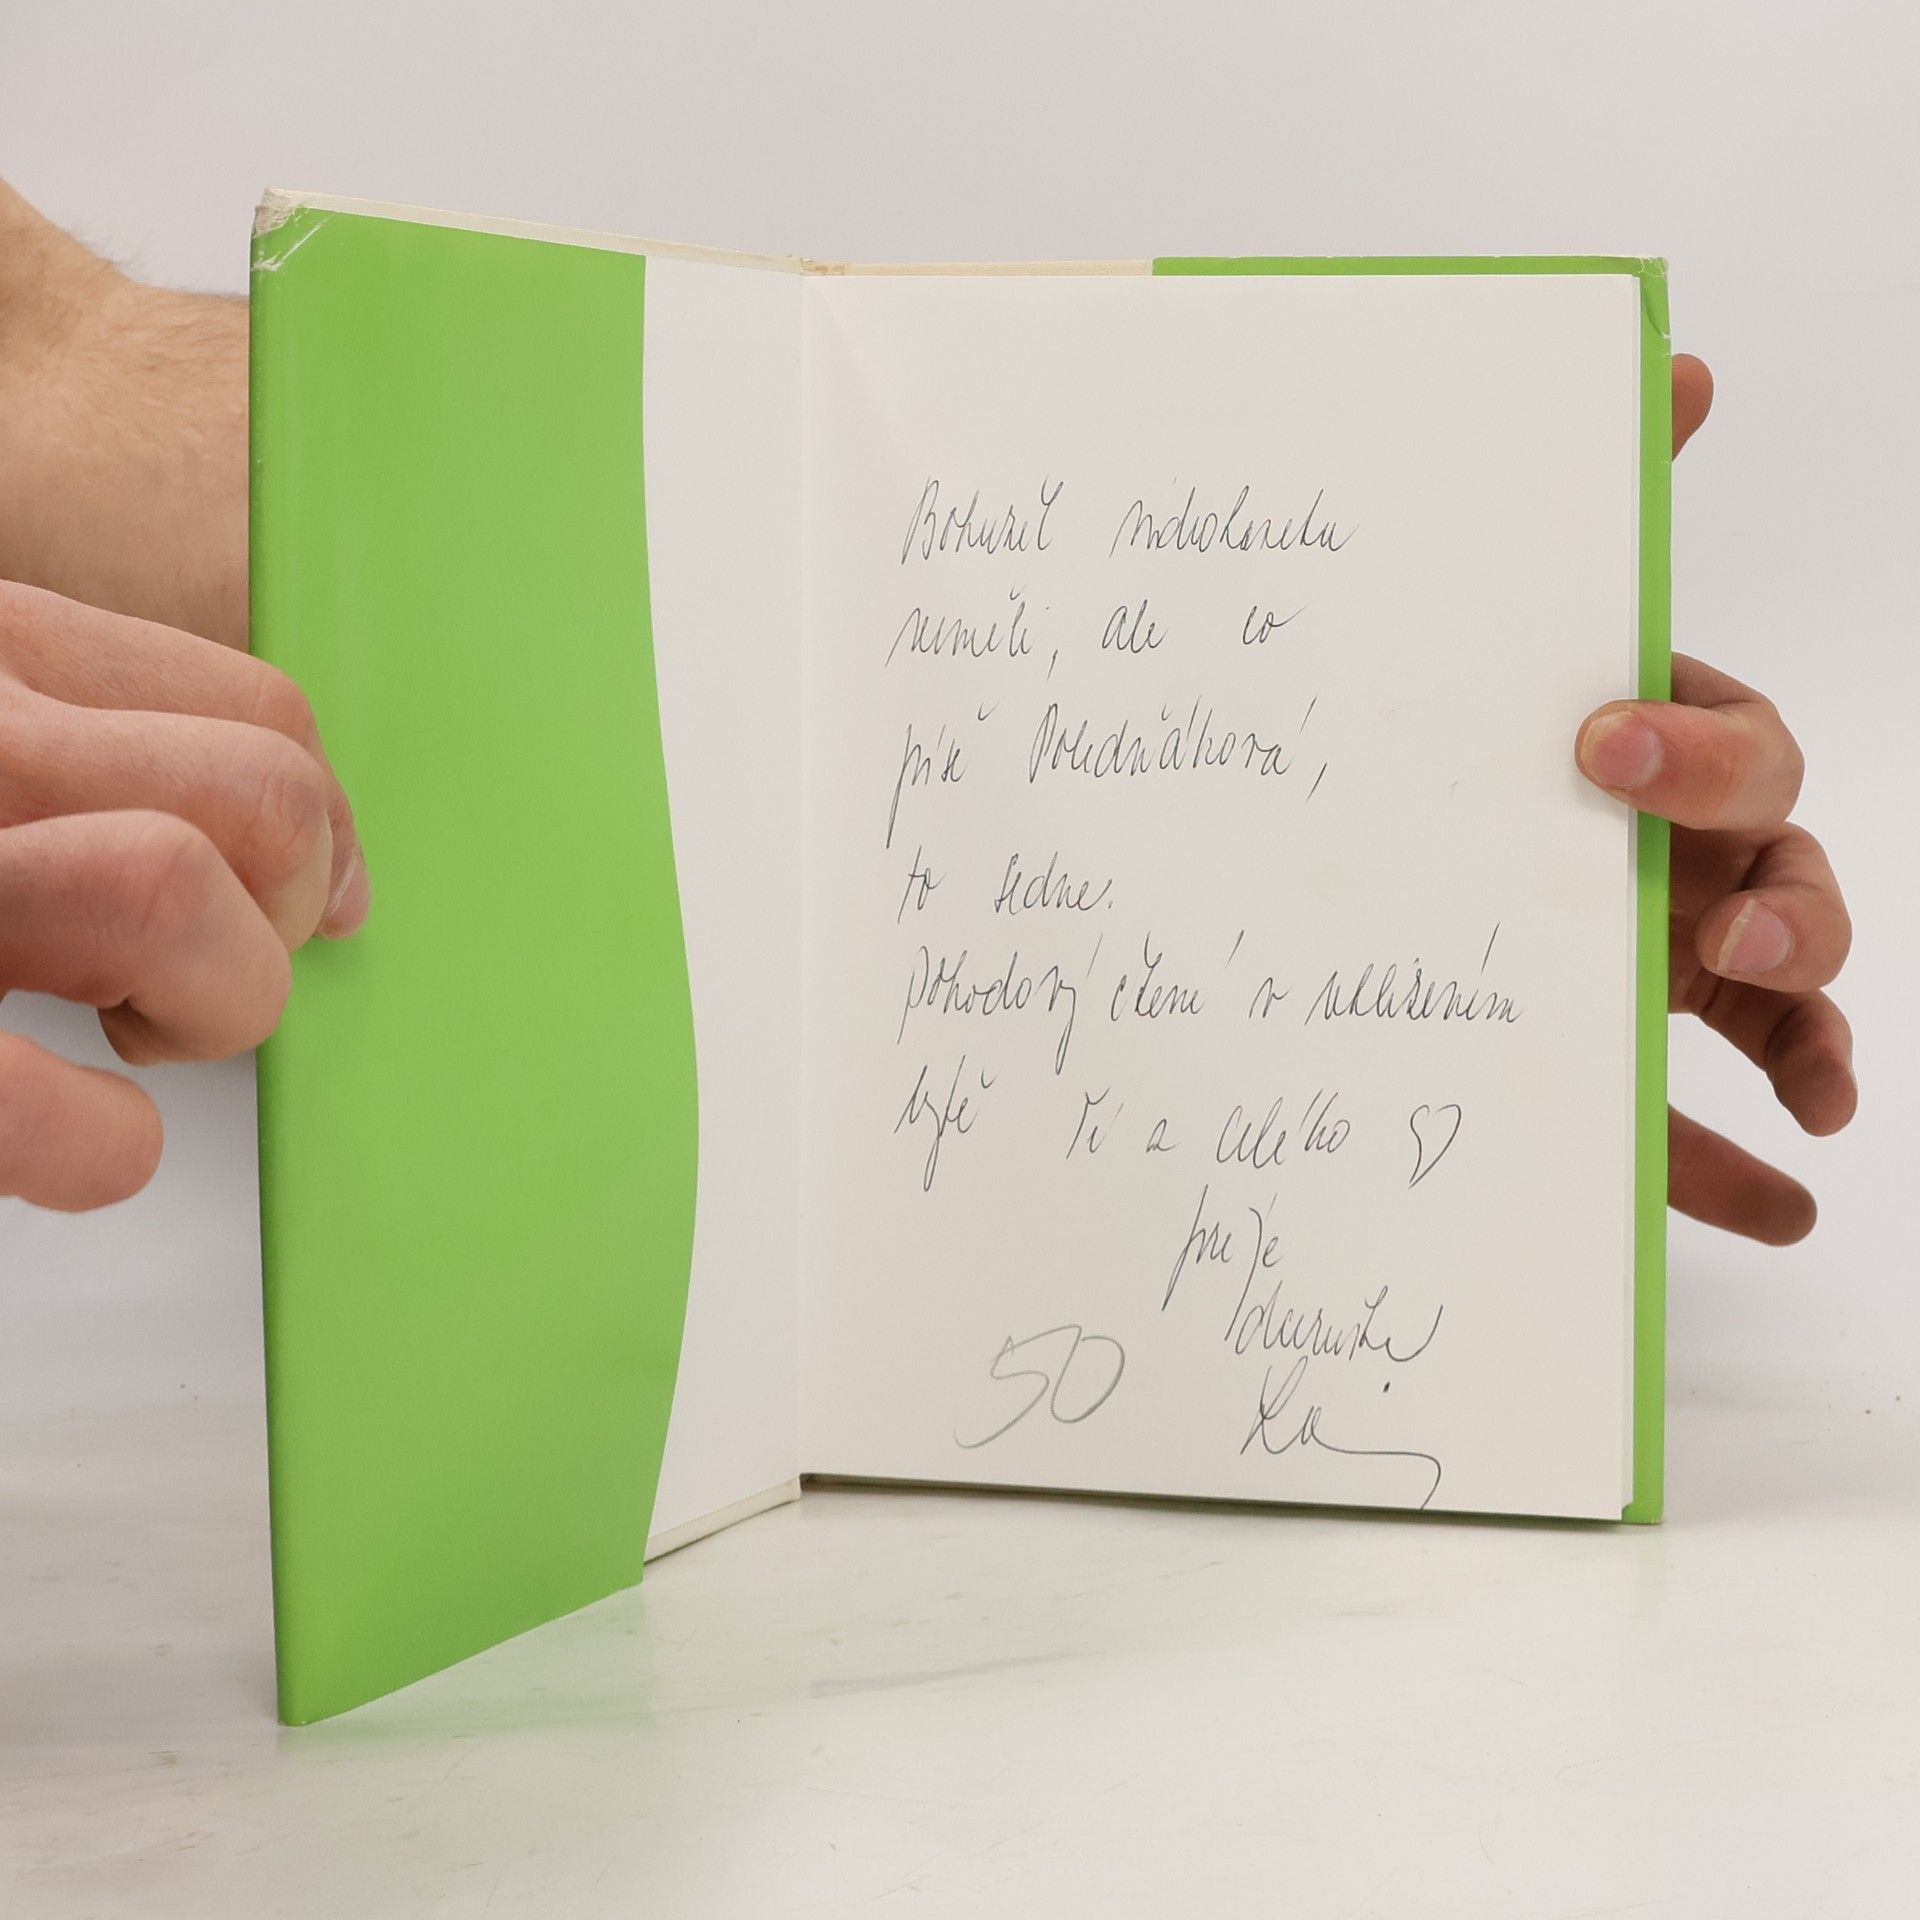 Bohužel videokazetu
neměli, ale co
píše Poledňáková,
to sedne.
Pohodový čtení v uklizeným
bytě Ti z celého ♡
přeje
50